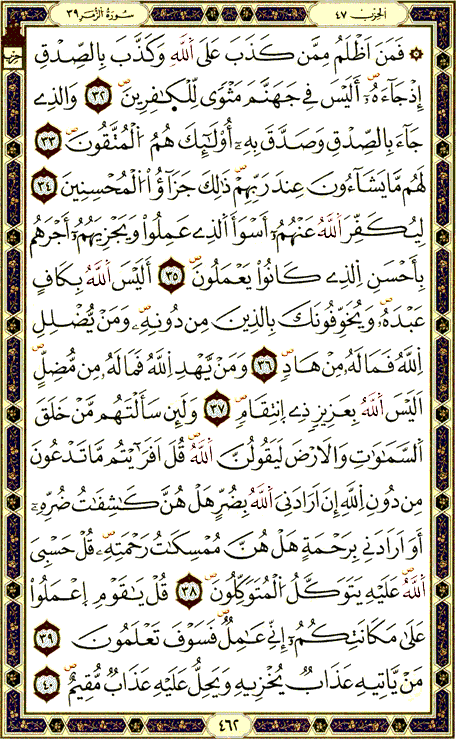 الحزب ٤٧
سورة الزمر ٣٩
حزب
۞ فَمَنَ اَظْلَمُ مِمَّن كَذَبَ عَلَى اَللَّهِ وَكَذَّبَ بِالصِّدْقِ
إِذْ جَآءَهُۥٓ أَلَيْسَ فِي جَهَنَّمَ مَثْوىً لِّلْكٰفِرِينَ ٣٢ وَالذِي
جَآءَ بِالصِّدْقِ وَصَدَّقَ بِهِۦٓ أُوْلَٰٓئِكَ هُمُ اُلْمُتَّقُونَ ٣٣
لَهُم مَّا يَشَآءُونَ عِندَ رَبِّهِمْ ذَٰلِكَ جَزَآؤُاْ اُلْمُحْسِنِينَ ٣٤
لِيُكَفِّرَ اَللَّهُ عَنْهُمُۥٓ أَسْوَأَ اَلذِي عَمِلُواْ وَيَجْزِيَهُمُۥٓ أَجْرَهُم
بِأَحْسَنِ اِلذِي كَانُواْ يَعْمَلُونَ ٣٥ أَلَيْسَ اَللَّهُ بِكَافٍ
عَبْدَهُۥ وَيُخَوِّفُونَكَ بِالذِينَ مِن دُونِهِۦ وَمَنْ يُّضْلِلِ
اِللَّهُ فَمَا لَهُۥ مِنْ هَادٍ ٣٦ وَمَنْ يَّهْدِ اِللَّهُ فَمَا لَهُۥ مِن مُّضِلٍّ
اَلَيْسَ اَللَّهُ بِعَزِيزٍ ذِے اِنتِقَامٍ ٣٧ وَلَئِن سَأَلْتَهُم مَّنْ خَلَقَ
اَلسَّمَٰوَٰتِ وَالَارْضَ لَيَقُولُنَّ اَللَّهُ قُلَ اَفَرَٰٓيْتُم مَّا تَدْعُونَ
مِن دُونِ اِللَّهِ إِنَ اَرَادَنِيَ اَللَّهُ بِضُرٍّ هَلْ هُنَّ كَٰشِفَٰتُ ضُرِّهِۦٓ
أَوَ اَرَادَنِي بِرَحْمَةٍ هَلْ هُنَّ مُمْسِكَٰتُ رَحْمَتِهِۦ قُلْ حَسْبِيَ
اَللَّهُ عَلَيْهِ يَتَوَكَّلُ اُلْمُتَوَكِّلُونَ ٣٨ قُلْ يَٰقَوْمِ اِعْمَلُواْ
عَلَىٰ مَكَانَتِكُمُۥٓ إِنِّي عَٰمِلٌ فَسَوْفَ تَعْلَمُونَ ٣٩
مَنْ يَّاتِيهِ عَذَابٌ يُخْزِيهِ وَيَحِلُّ عَلَيْهِ عَذَابٌ مُّقِيمٌ ٤٠
٤٦٢